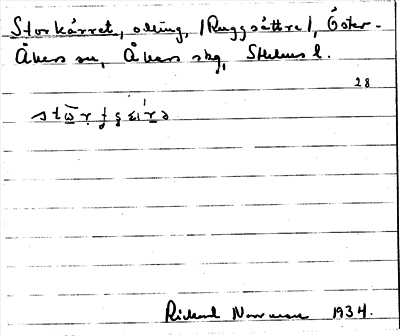 Storkärret, odling, (Ruggsättra), Öster-
Åkers sn, Åkers skg, Sthlms l.
28
Rickard Norrman 1934.